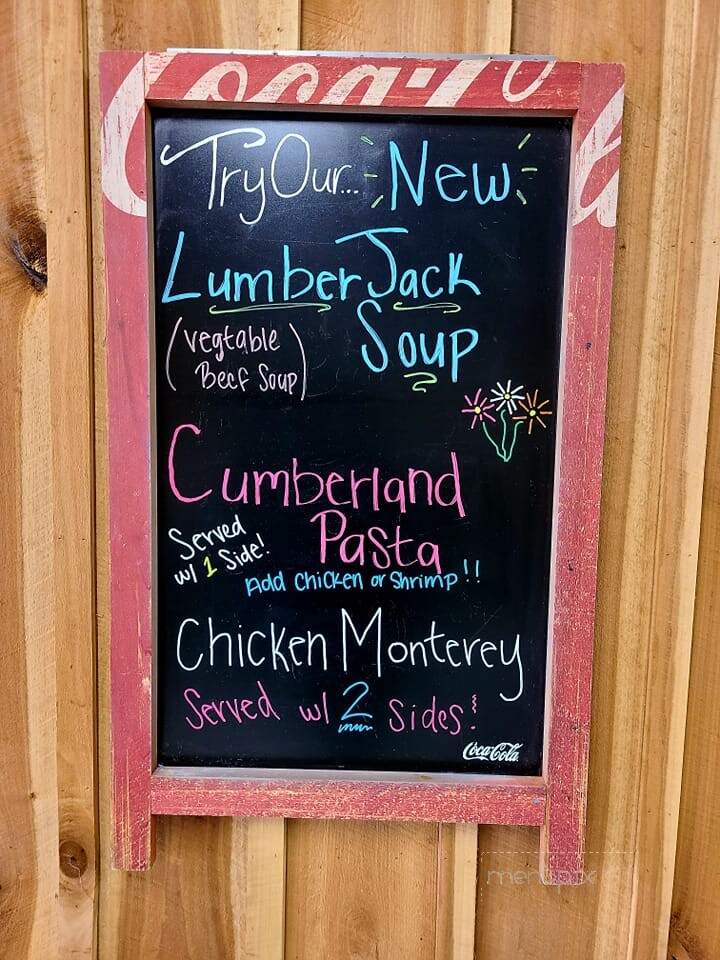 Coca-Cola
Try Our... New
LumberJack
Soup
(vegtable
Beef Soup)
Cumberland
Pasta
Served
w/ 1 Side!
Add chicken or Shrimp!!
Chicken Monterey
Served w/ 2 Sides!
Coca-Cola